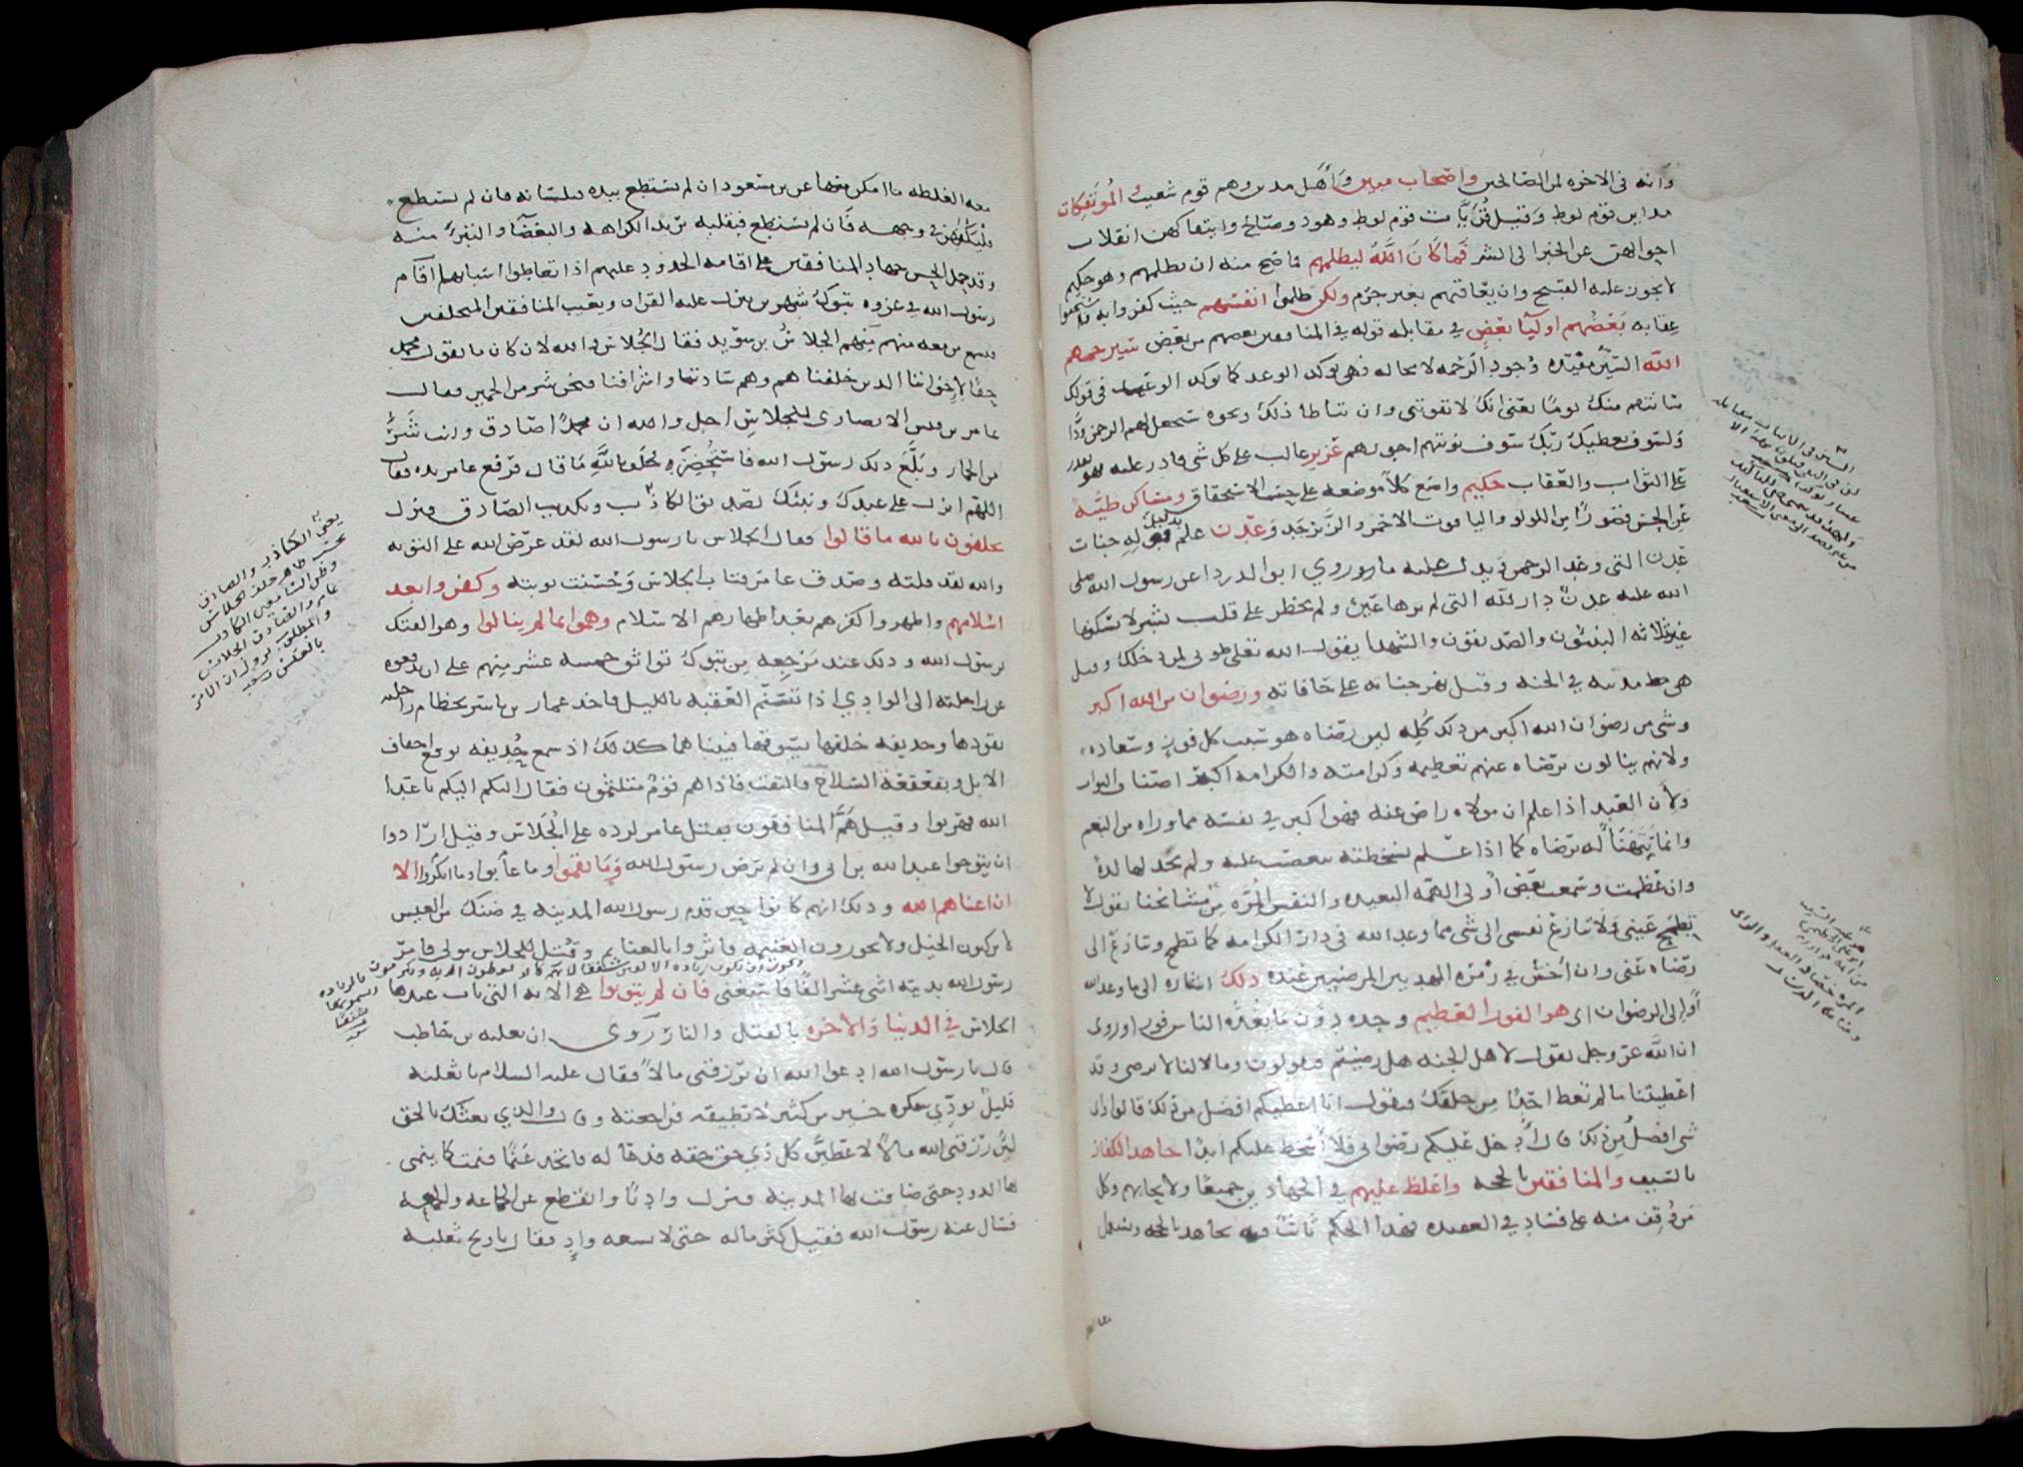 وانه فى الاخره لمن الصالحين واصحاب مدين وأهل مدين وهم قوم شعيب المؤتفكات
مداين قوم لوط وقيل قريات قوم لوط وهود وصالح وايتفاكهن انقلاب
احوالهن عن الخير الى الشر فما كان الله ليظلمهم فما صح منه ان يظلمهم وهو حكيم
لا يجوز عليه القبيح وان يعاقبهم بغير جرم ولكن ظلموا انفسهم حيث كفروا به فاستحقوا
عقابه بعضهم اوليآ بعض في مقابله قوله في المنافقين بعضهم من بعض سيرحمهم
الله السين مفيده وجود الرحمه لا محاله فهى توكد الوعد كما توكد الوعيد فى قولك
سانتقم منك يوما يعنى انك لا تفوتنى وان تباطا ذلك ونحوه سيجعل لهم الرحمن ودا
ولسوف يعطيك ربك سوف نوتيهم اجورهم عزيز غالب على كل شى قادر عليه فهو يقدر
على الثواب والعقاب حكيم واضع كلا موضعه على حسب الاستحقاق ومساكن طيبة
عن الحسن قصورا من اللولو والياقوت الاحمر والزبرجد وعدن علم بدليل قوله جنات
عدن التى وعد الرحمن ويدل عليه ما روى ابو الدردا عن رسول الله صلى
الله عليه عدن دار الله التى لم ترها عين ولم تخطر على قلب بشر لا يسكنها
غير ثلاثه النبيون والصديقون والشهدا يقول الله تعلى طوبى لمن دخلك وقيل
هى مدينه في الجنه وقيل نهر جناته على حافاته ورضوان من الله اكبر
وشى من رضوان الله اكبر من ذلك كله لين رضاه هو سبب كل فوز وسعاده
ولانهم ينالون برضاه عنهم تعظيمه وكرامته والكرامه اكبر اصناف الثواب
ولأن العبد اذا علم ان مولاه راض عنه فهو اكبر في نفسه مما وراه من النعم
وانما يتهنأ له برضاه كما اذا علم بسخطته تنغصت عليه ولم يجد لها لذة
وان عظمت وسمعت بعض أولى الهمه البعيده والنفس المره من مشائخنا يقول لا
تطمح عينى ولا تنازع نفسى الى شى مما وعد الله فى دار الكرامه كما تطمح وتنازع الى
رضاه عنى وان أحشر في زمره المهديين المرضيين عنده ذلك اشاره الى ما وعد الله
أو الى الرضوان اى هو الفوز العظيم وحده دون ما يعده الناس فوزا وروى
ان الله عز وجل يقول لاهل الجنه هل رضيتم فيقولون وما لنا لا نرضى وقد
اعطيتنا ما لم تعط احدا من خلقك فيقول انا اعطيكم افضل من ذلك قالوا واى
شى افضل من ذلك قال أدخل عليكم رضوانى فلا أسخط عليكم ابدا جاهد الكفار
بالسيف والمنافقين بالحجه واغلظ عليهم في الجهادين جميعا ولا تحابهم وكل
من وقف منه على فساد في العقيده فهذا الحكم ثابت فيه يجاهد بالحجه وتستعمل
معه الغلظه ما امكن منها عن بن مسعود ان لم يستطع بيده فبلسانه فان لم يستطع
فليكفهر في وجهه فان لم يستطع فبقلبه يريد الكراهه والبغضآ والتبرؤ منه
وقد حمل الحسن جهاد المنافقين على اقامه الحدود عليهم اذا تعاطوا اسبابها اقام
رسول الله في غزوه تبوك شهرين ينزل عليه القران ويعيب المنافقين المتخلفين
فسمع من معه منهم منهم الجلاس بن سويد فقال الجلاس والله لان كان ما يقول محمد
حقا لإخواننا الدين خلفناهم وهم سادتنا واشرافنا فنحن شر من الحمير فقال
عامر بن قيس الانصارى للجلاس اجل والله ان محمدا صادق وانت شر
من الحمار وبلغ ذلك رسول الله فاستحضره فحلف بالله ما قال فرفع عامر يده فقال
اللهم انزل على عبدك ونبيك تصديق الكاذب وتكذيب الصادق فنزل
يحلفون بالله ما قالوا فقال الجلاس يا رسول الله لقد عرض الله على التوبه
والله لقد قلته وصدق عامر فتاب الجلاس وحسنت توبته وكفروا بعد
اسلامهم واظهروا كفرهم بعد اظهارهم الاسلام وهموا بما لم ينالوا وهو الفتك
برسول الله وذلك عند مرجعه من تبوك تواثق خمسه عشر منهم على ان يدفعوه
عن راحلته الى الوادي اذا تسنم العقبه بالليل فاخذ عمار بن ياسر بخطام راحلته
يقودها وحذيفه خلفها يسوقها فبينا هما كذلك اذ سمع حذيفه بوقع اخفاف
الابل وبقعقعة السلاح فالتفت فاذا هم قوم متلثمون فقال اليكم اليكم يا عدا
الله فهربوا وقيل هم المنافقون بقتل عامر لرده على الجلاس وقيل ارادوا
ان يتوجوا عبد الله بن ابى وان لم يرض رسول الله وما نقموا وما عابوا وما انكروا الا
ان اغناهم الله وذلك انهم كانوا حين قدم رسول الله المدينه في ضنك من العيس
لا يركبون الخيل ولا يحوزون الغنيمه فاثروا بالغنايم وقتل للجلاس مولى فامر
رسول الله بديته اثنى عشر الفا فاستغنى فان لم يتوبوا هى الايه التى تاب عندها
الجلاس في الدنيا والاخره بالقتل والنار روى ان ثعلبه بن حاطب
قال يا رسول الله ادعوا الله ان يرزقنى مالا فقال عليه السلام يا ثعلبه
قليل تودي شكره خير من كثير لا تطيقه فراجعه وقال والذي بعثك بالحق
لين رزقنى الله مالا لاعطين كل ذي حق حقه فدعا له فاتخد غنما فنمت كما ينمى
الدود حتى ضاقت بها المدينه فنزل واديا وانقطع عن الجماعه والجمعه
فسال عنه رسول الله فقيل كثر ماله حتى لا يسعه واد فقال يا ويح ثعلبه